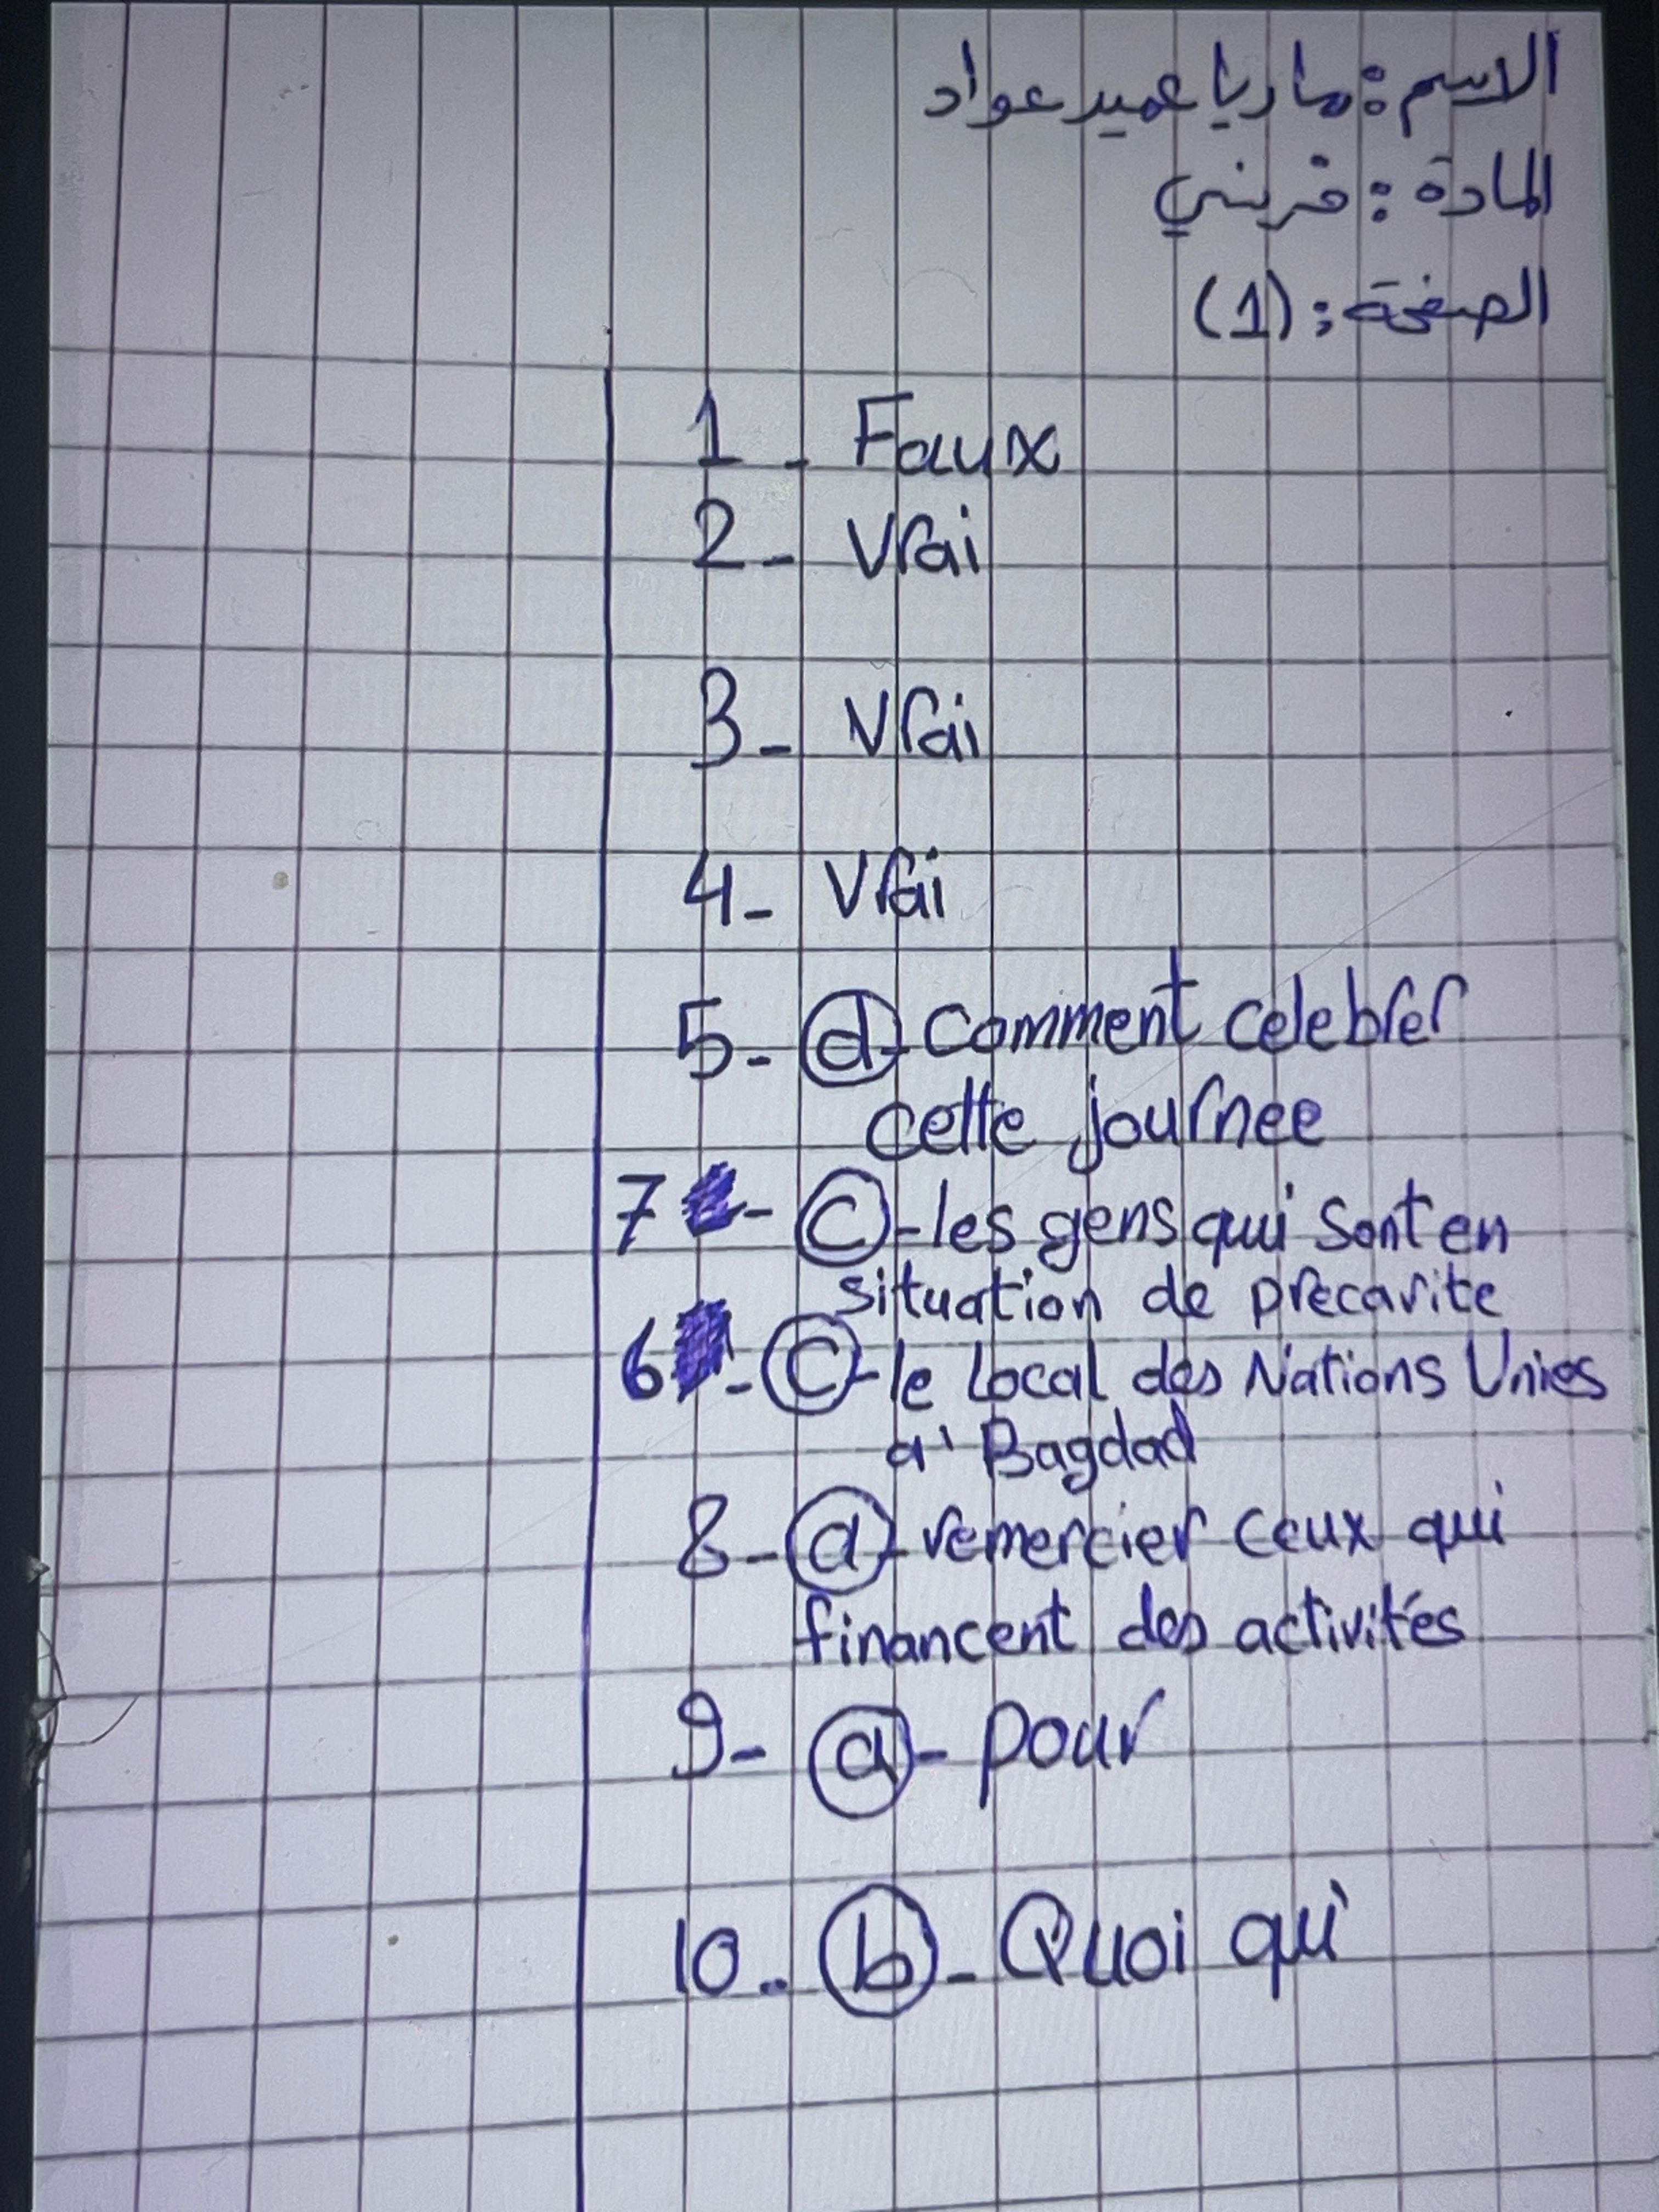 الاسم: ماريا عميد عواد
المادة: فرنسي
الصفحة: (1)
1 - Faux
2 - Vrai
3 - Vrai
4 - Vrai
5 - d - Comment celebrer
cette journee
7 - C - les gens qui sont en
situation de precarite
6 - C - le local des Nations Unies
a' Bagdad
8 - a - remercier ceux qui
financent des activités
9 - a - pour
10 - b - Quoi qui